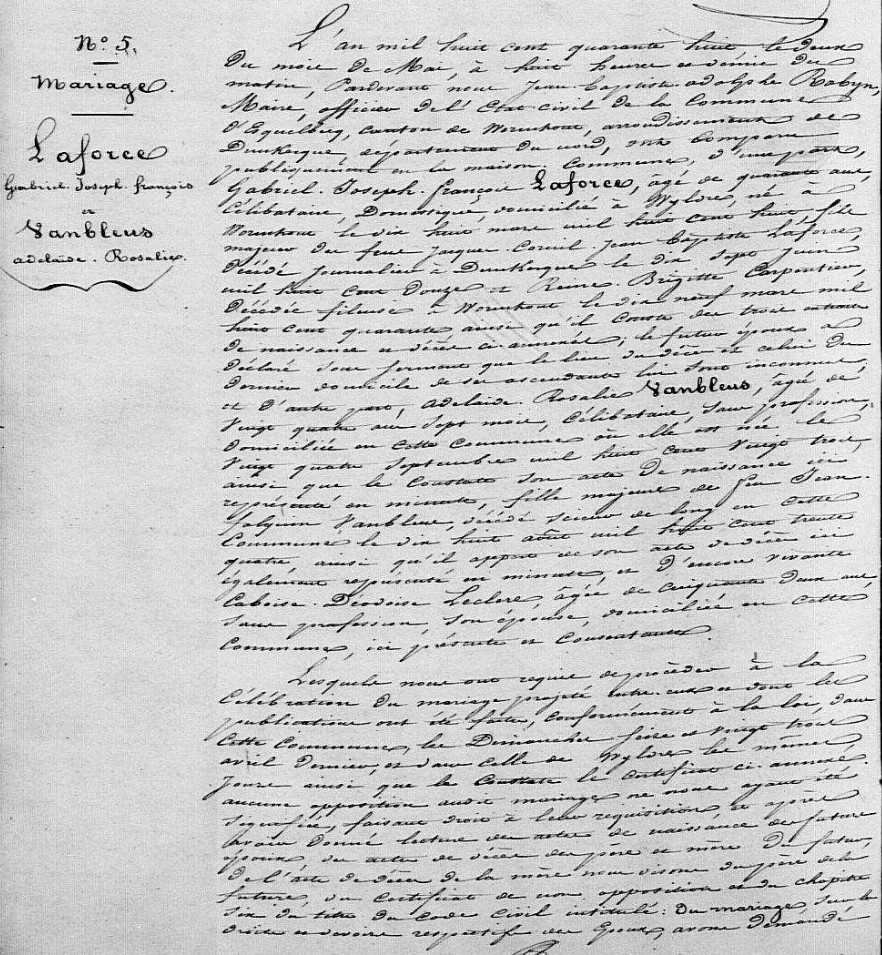 N.º 5.
Mariage.
Laforce
Gabriel. Joseph. françois
et
Vanbleus
adelaide. Rosalie.
L'an mil huit cent quarante huit, le deux
du mois de Mai, à huit heures et demie du
matin, Pardevant nous Jean-Baptiste-adolphe Robyn,
Maire, officier de l'Etat-civil de la Commune
d'Esquelbecq, canton de Wormhout, arrondissement de
Dunkerque, département du nord, ont comparu
publiquement en la maison commune, d'une part,
Gabriel. Joseph. françois Laforce, âgé de quarante ans,
Célibataire, Domestique, domicilié à Wylder, né à
Wormhout le dix huit mars mil huit cent huit, fils
majeur de feux Jacques. Corneil. Jean-Baptiste Laforce,
décédé Journalier à Dunkerque le dix sept Juin
mil huit cent douze et Reine. Brigitte Carpentier,
décédée fileuse à Wormhout le dix neuf mars mil
huit cent quarante ainsi qu'il conste des trois extraits
de naissance et décès ci-annexés; le futur époux a
déclaré sous serment que le lieu du décès et celui du
dernier domicile de ses ascendants lui sont inconnus,
et d'autre part, adelaide. Rosalie Vanbleus, âgée de
Vingt quatre ans sept mois, Célibataire, sans profession,
domiciliée en cette Commune où elle est née le
Vingt quatre Septembre mil huit cent Vingt trois,
ainsi que le constate son acte de naissance ici
représenté en minute, fille majeure de feu Jean.
Vanbleus, décédé Scieur de long en cette
Commune le dix huit août mil huit cent trente
quatre, ainsi qu'il appert de son acte de décès ici
également représenté en minute, et d'encore vivante
Leclerc, âgée de cinquante deux ans,
sans profession, son épouse, domiciliée en cette
Commune, ici présente et consentante.
Lesquels nous ont requis de procéder à la
Célébration du mariage projeté entre eux et dont les
publications ont été faites, conformément à la loi, dans
cette Commune, les Dimanches seize et vingt trois
avril dernier, et dans celle de Wylder les mêmes
Jours ainsi que le constate le certificat ci-annexé.
aucune opposition audit mariage ne nous ayant été
signifiée, faisant droit à leur réquisition et après
avoir donné lecture des actes de naissance des futurs
époux, des actes de décès des père et mère du futur,
de l'acte de décès du père de la
future, du certificat de non opposition et du chapitre
six du titre du code civil intitulé: Du mariage, sur les
droits et devoirs respectifs des Epoux, avons demandé